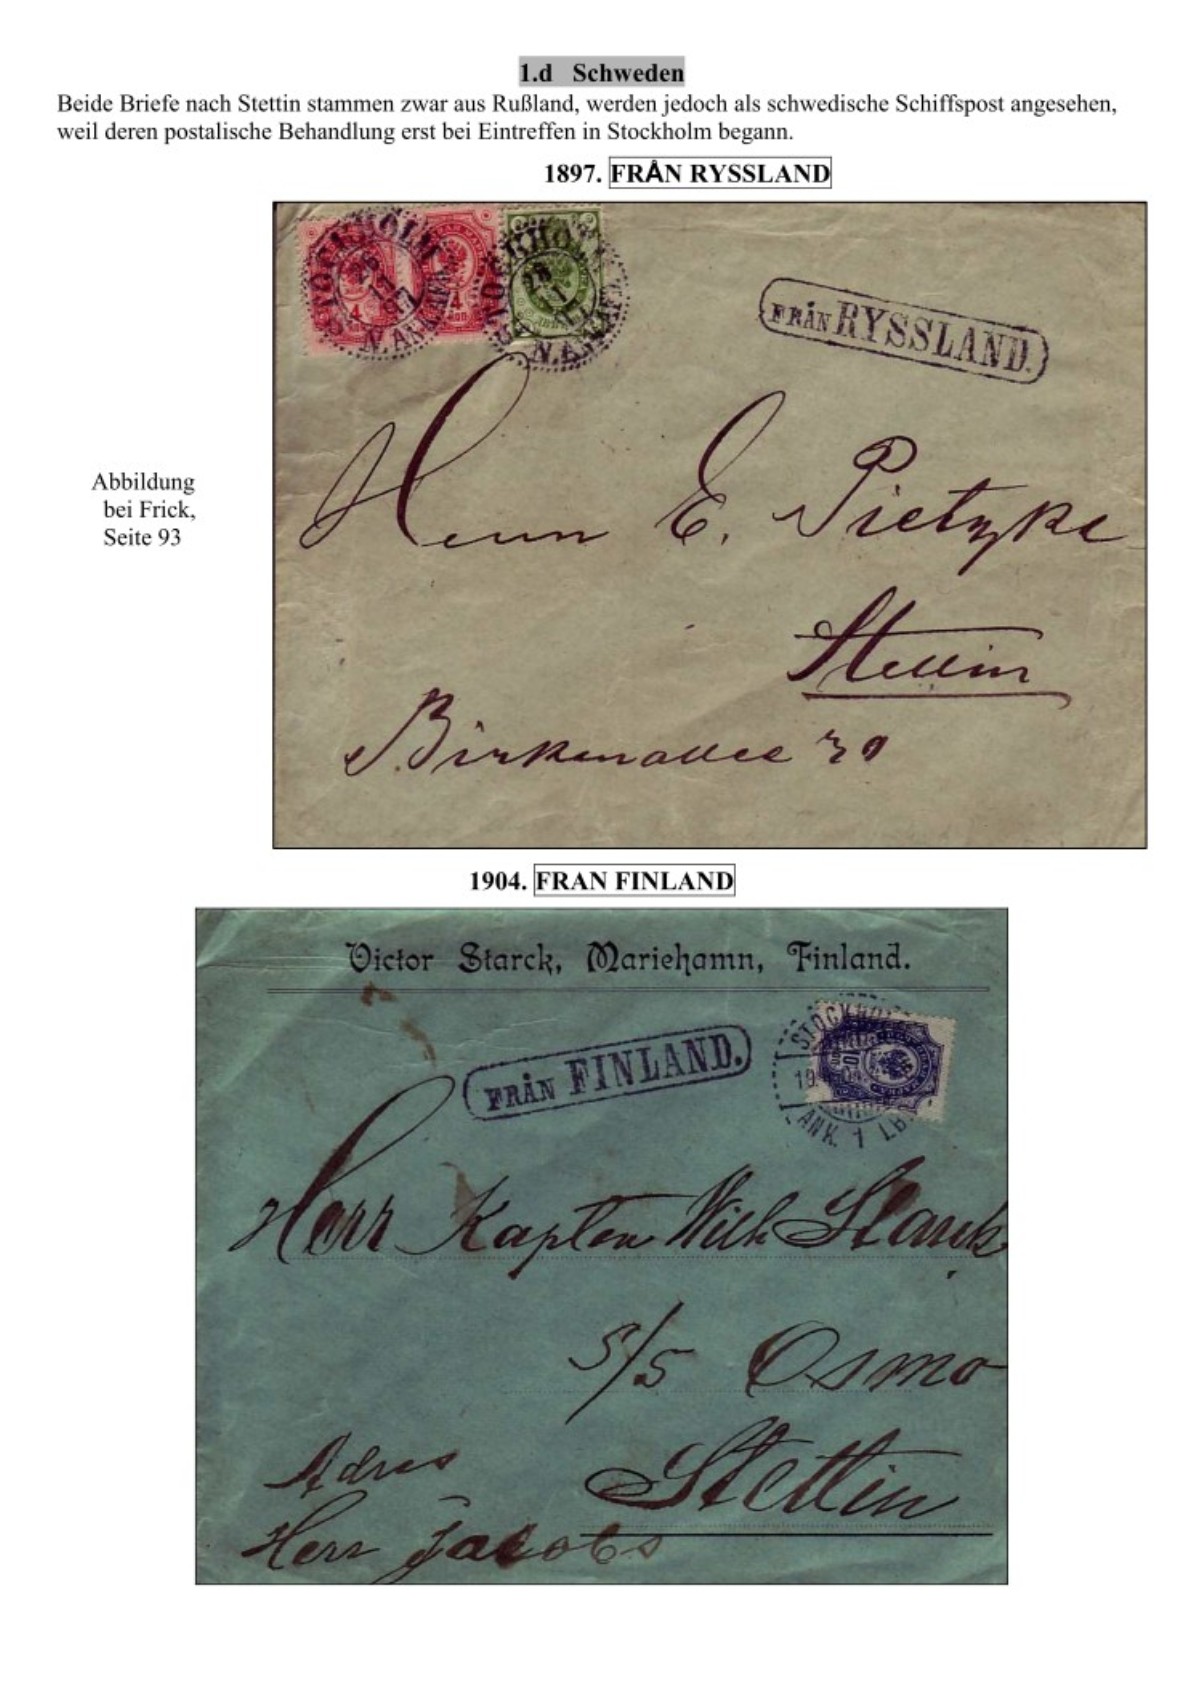 1.d Schweden
Beide Briefe nach Stettin stammen zwar aus Rußland, werden jedoch als schwedische Schiffspost angesehen,
weil deren postalische Behandlung erst bei Eintreffen in Stockholm begann.
1897. FRÅN RYSSLAND
STOCKHOLM
N. ANK.
FRÅN RYSSLAND.
Herrn E. Pietzke
Stettin
Birkenallee
Abbildung
bei Frick,
Seite 93
1904. FRAN FINLAND
Victor Starck, Mariehamn, Finland.
FRÅN FINLAND.
STOCKHOLM
ANK. 1 LB
Herr Kapten Starck
S/S Osmo
Stettin
Adres
Herr Jacobs